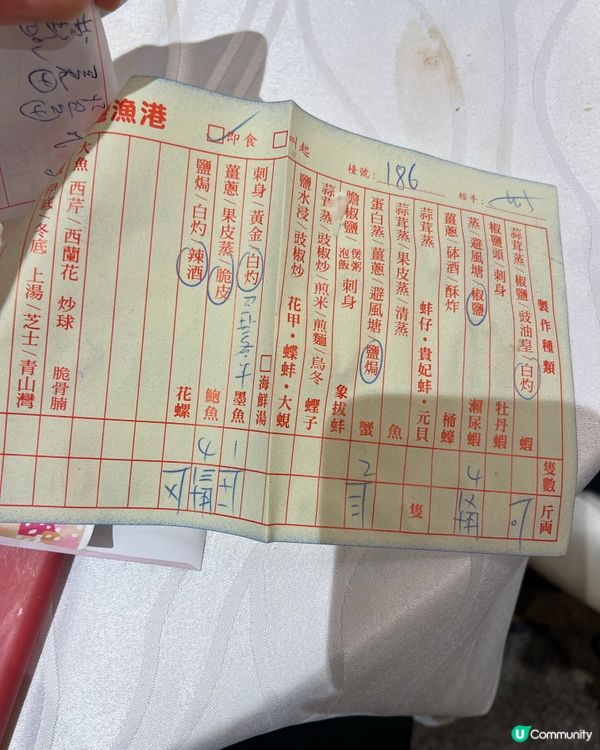 漁港
即食
叫起
檯號：186
經手：
製作種類
隻數
斤兩
蒜茸蒸 椒鹽/豉油皇/白灼 蝦
椒鹽頭 刺身 牡丹蝦
蒸/避風塘/椒鹽 瀨尿蝦 4
薑蔥/砵酒/酥炸 桶蠔
蒜茸蒸 蚌仔·貴妃蚌·元貝 隻
蒜茸蒸/果皮蒸/清蒸 魚
蛋白蒸/薑蔥/避風塘/鹽焗 蟹 2
膽椒鹽/煲粥 泡飯 刺身 象拔蚌
蒜茸蒸/豉椒炒/煎米/煎麵/烏冬 蟶子
鹽水浸/豉椒炒 花甲·蝶蚌·大蜆
海鮮湯
刺身 黃金/白灼 墨魚 1
薑蔥/果皮蒸/脆皮 鮑魚 4
鹽焗/白灼/辣酒 花螺
大魚 西芹/西蘭花 炒球 脆骨腩
底/冬底 上湯/芝士/青山灣
U Community